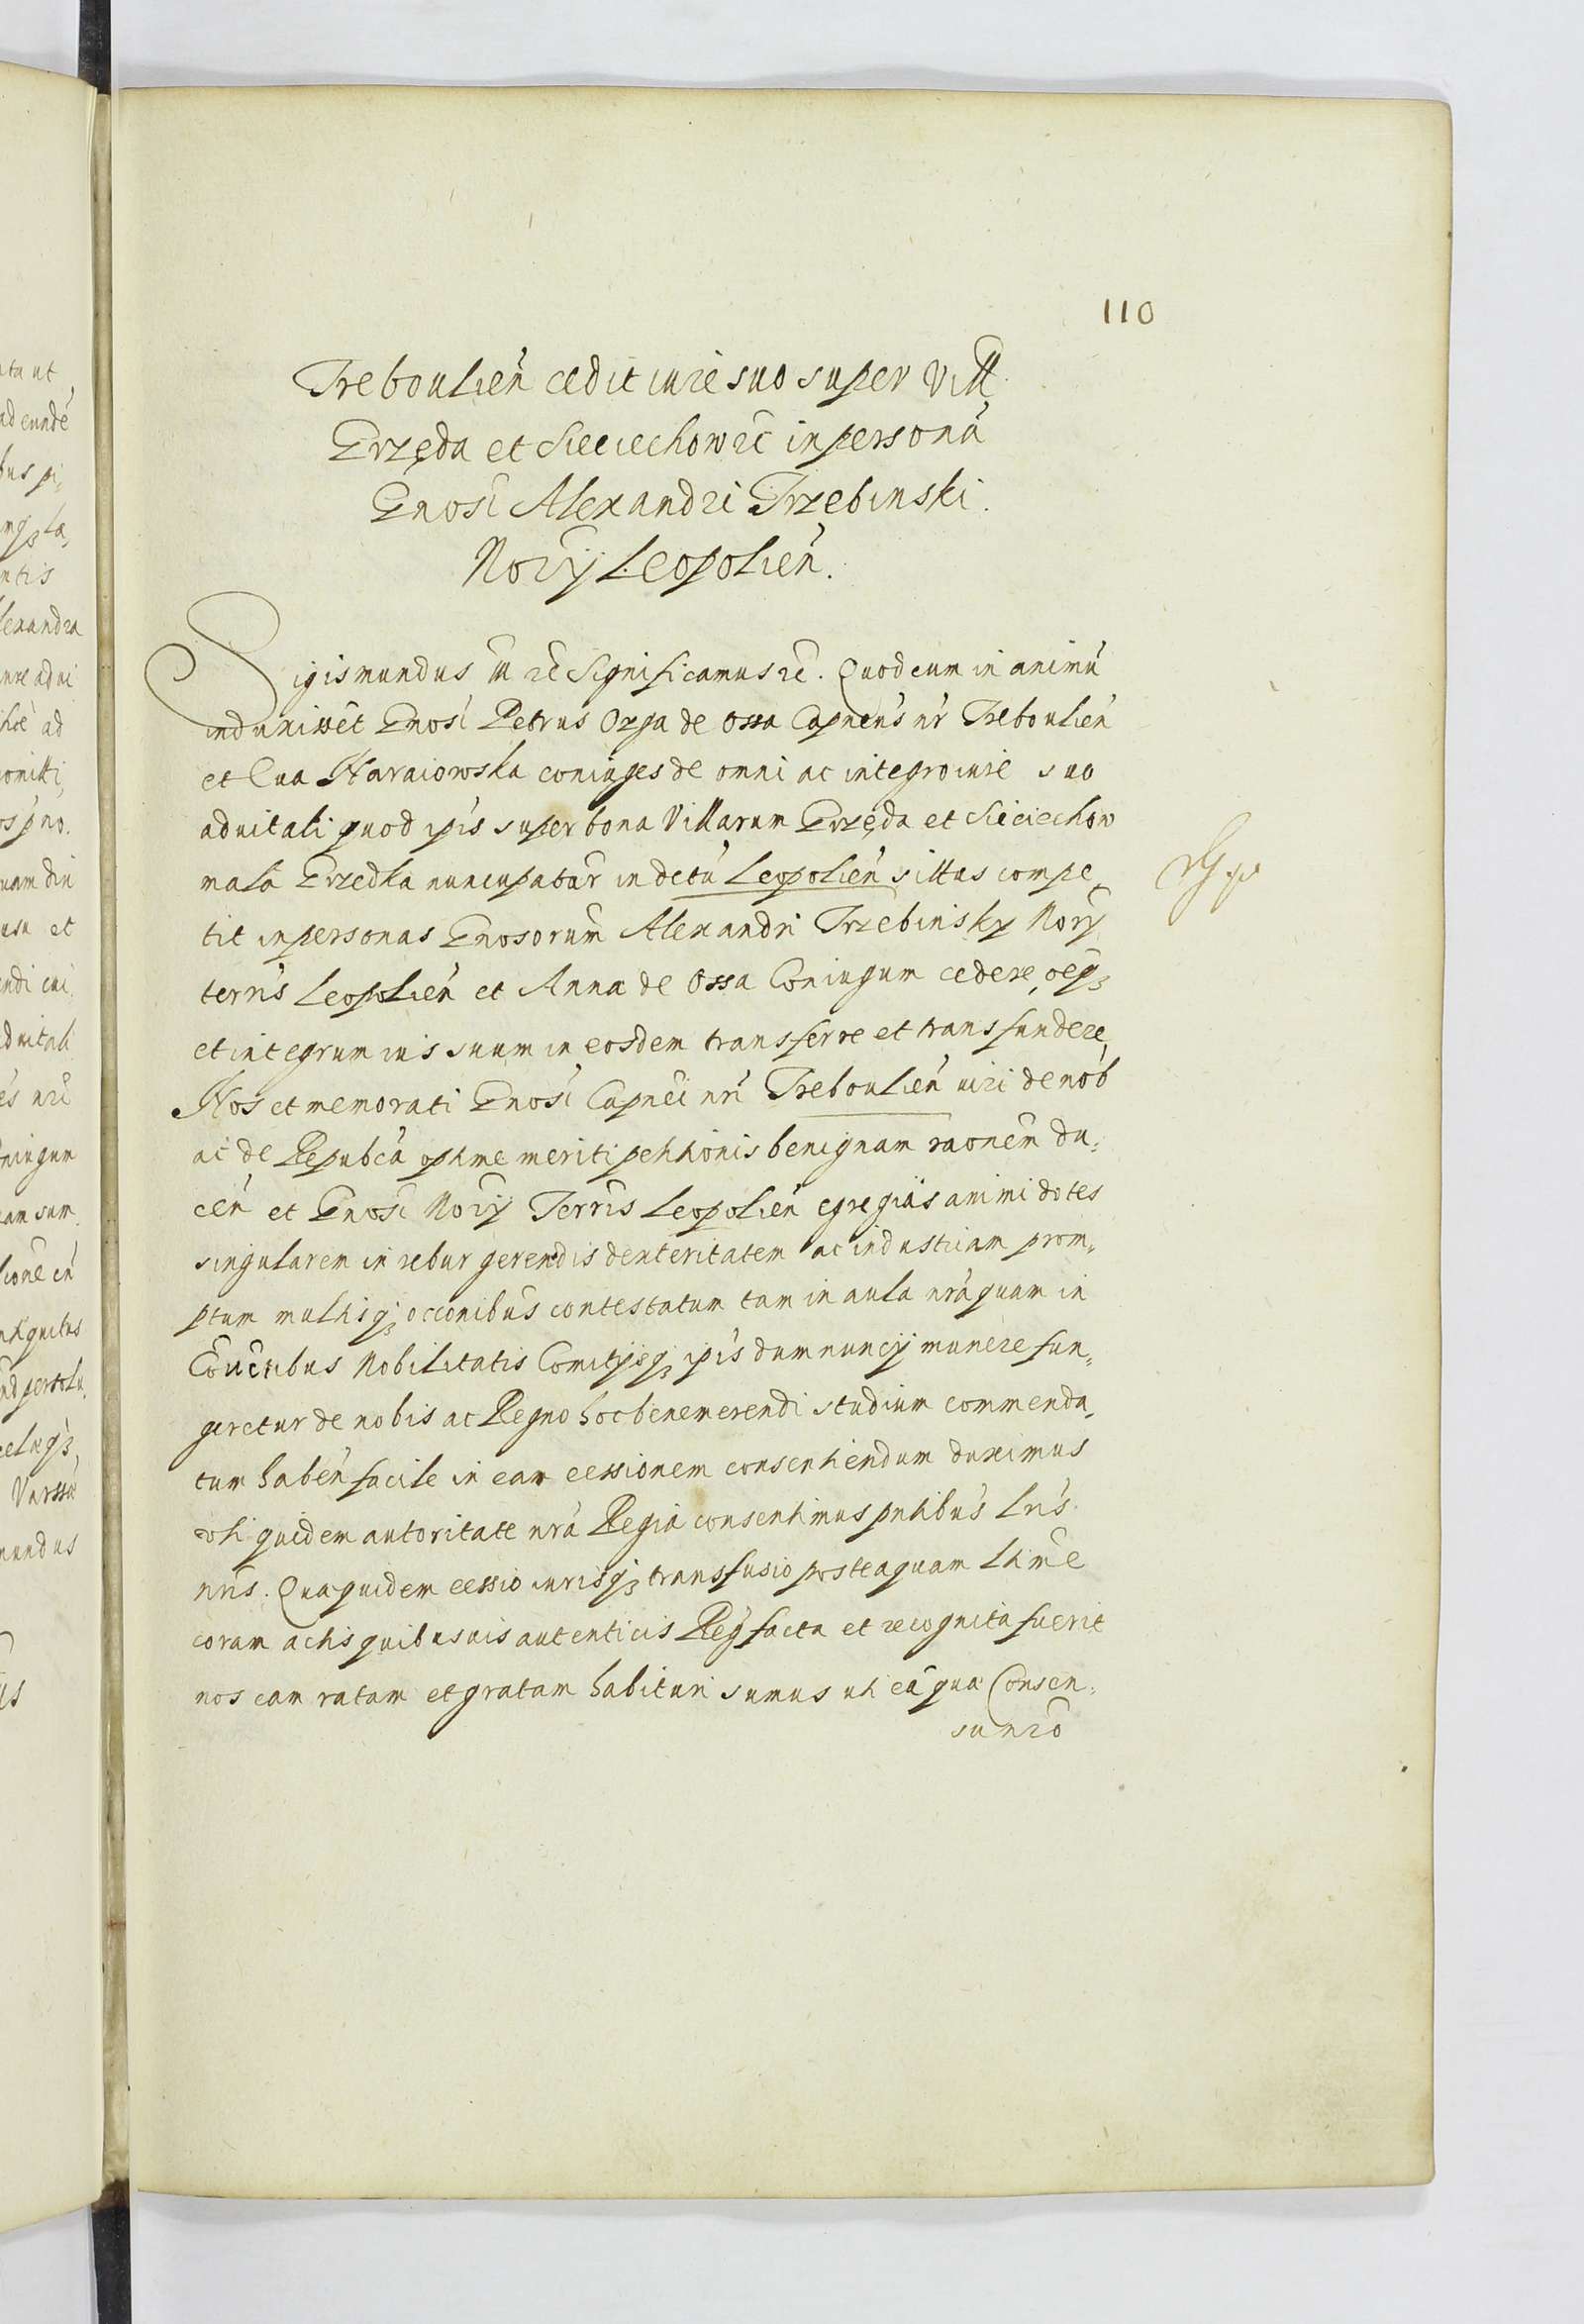 110
Treboulień cedit iure suo super Vill
Grzęda et Sieciechow etc in personā
Gnosi Alexandri Trzebinski
Norÿ Leopolień.
Sigismundus III etc Significamus etc. Quod cum in animū
induxiset Gnosi Petrus Ozga de Ossa Capneus nr Treboulień
et Eua Naraiowska coniuges de omni ac integro iure suo
aduitali quod ipis super bona Villarum Grzęda et Sieciechow
mala Grzedka nuncupatur in dctū Leopolień sittas compe,
tit in personas Gnosorum Alexandri Trzebinsky Norÿ
terris Leopolień et Anna de Ossa Coniugum cedere, oeq3
et integrum ius suum in eosdem transferre et transfundere,
Nos et memorati Gnosi Capnei nri Treboulień uiri de nob
ac de Repubca optime meriti petitionis benignam raonem du,
cen et Gnosi Norÿ Terris Leopolień egregias animi dotes
singularem in rebus gerendis dexteritatem ac industriam prom,
ptum multisq3 occonibus contestatum tam in aula nra quam in
Couentibus Nobilitatis Comitÿsq3 ipis dum nuncÿ munere fun,
geretur de nobis ac Regno hoc benemerendi studium commenda,
tum haben facile in eam cessionem consentiendum duximus
uti quidem autoritate nra Regia consentimus pntibus Lris
nris. Qua quidem cessio iurisq3 transfusio posteaquam Ltime
coram actis quibusuis autenticis Reg facta et recognita fuerit
nos eam ratam et gratam habituri sumus uti ea qua Consen,
su nro